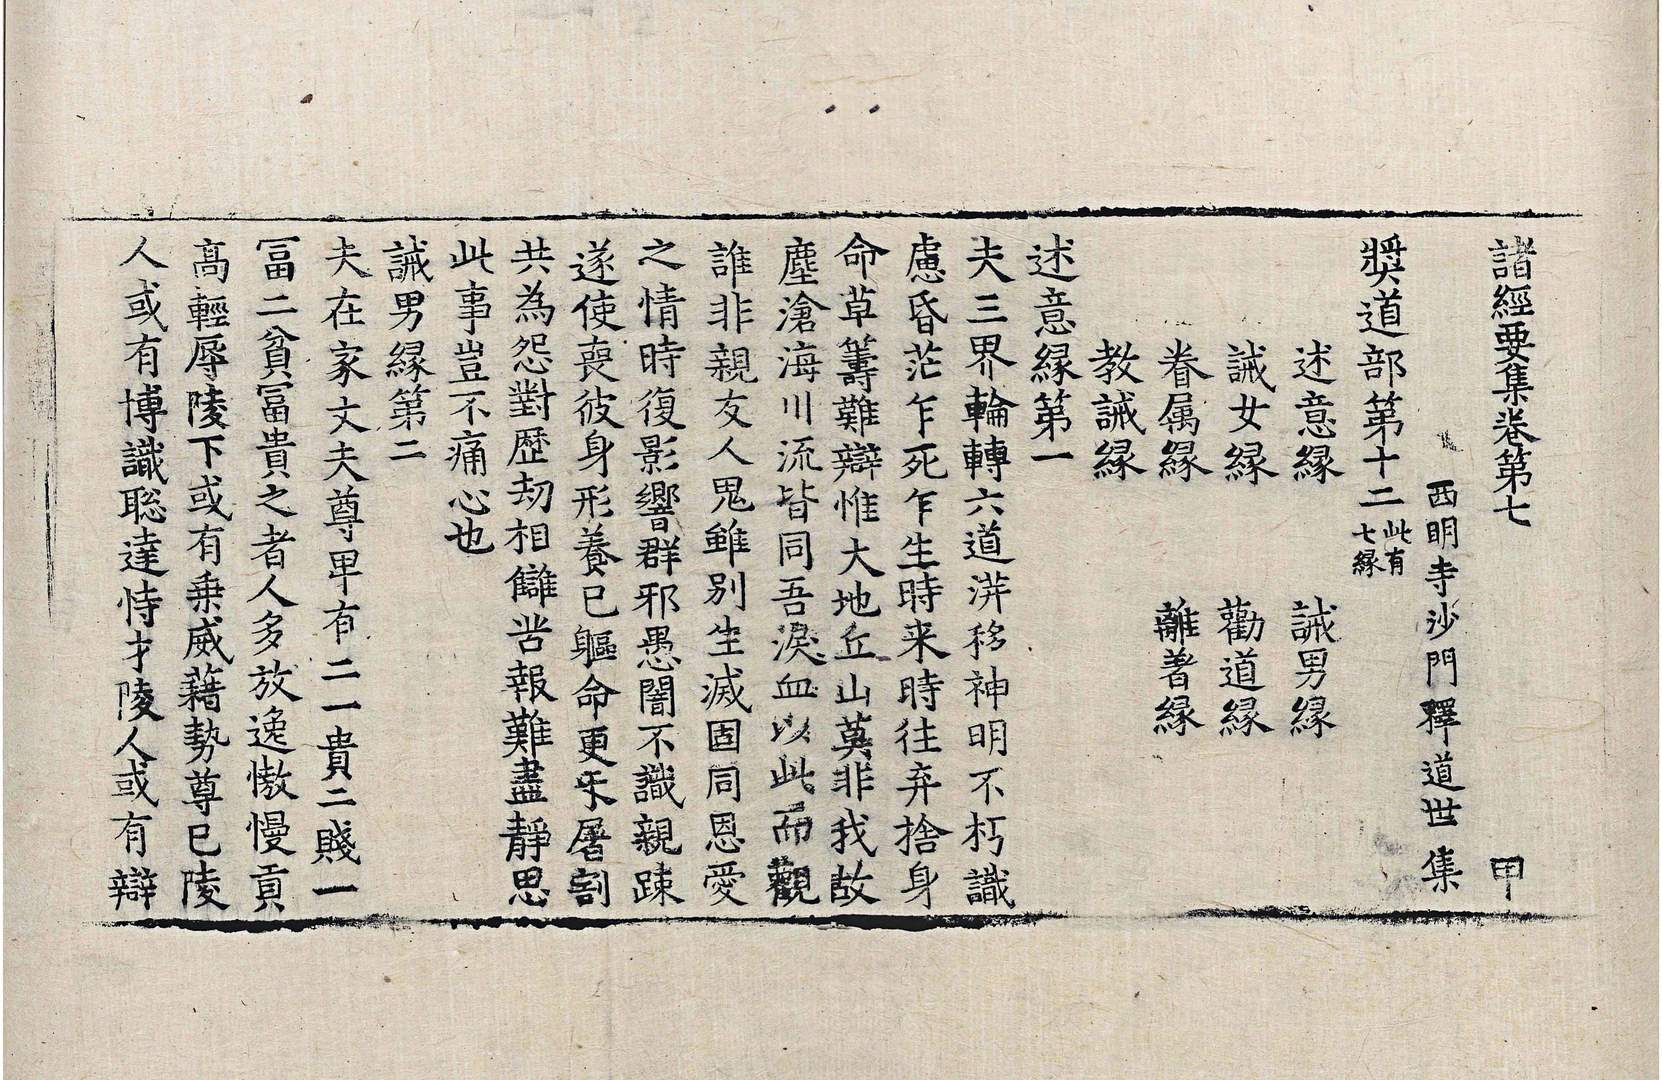 諸經要集卷第七　甲
西明寺沙門釋道世集
奬道部第十二此有七緣
述意緣　誡男緣
誡女緣　勸道緣
眷属緣　離著緣
教誡緣
述意緣第一
夫三界輪轉六道漭移神明不朽識
慮昏茫乍死乍生時来時往弃捨身
命草籌難辯惟大地丘山莫非我故
塵滄海川流皆同吾淚血以此而觀
誰非親友人鬼雖別生滅固同恩愛
之情時復影響群邪愚闇不識親踈
遂使喪彼身形養已軀命更㸦屠割
共為怨對歷劫相讎苦報難盡靜思
此事豈不痛心也
誡男緣第二
夫在家丈夫尊卑有二一貴二賤一
冨二貧冨貴之者人多放逸憿慢貢
高輕辱陵下或有乗威藉勢尊已陵
人或有博識聡達恃才陵人或有辯